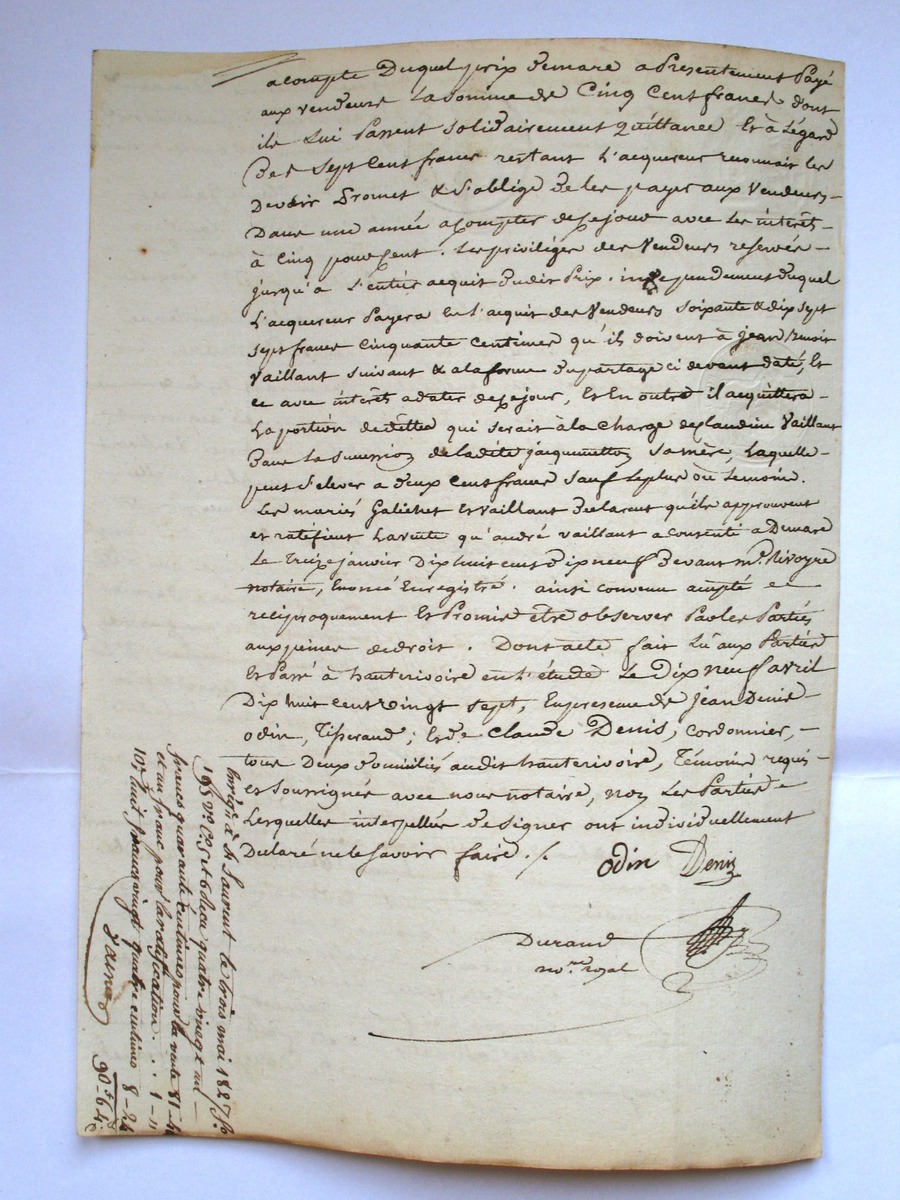 acompte Duquel prix Demare a Presentement Payé
aux vendeurs La Somme de Cinq Cent francs dont
ils Lui Passent Solidairement quittance Et à Légard
Des Sept Cent francs restant L'acquereur reconnait les
Devoir Promet & S'oblige De les payer aux Vendeurs
Dans une année acompter de ce jour avec Les intérêts
à Cinq pour Cent. Les privilèges des Vendeurs reservés
jusqu'à L'entier acquit Dudit Prix. independement Duquel
L'acquereur Payera En L'acquit des Vendeurs Soixante & dix sept
sept francs Cinquante Centimes qu'ils doivent à jean
Vaillant Suivant & ala forme Dupartage ci devant daté, Et
ce avec intérêts adater de ce jour, Et En outre il acquittera
La portion de dettes qui Serait à la Charge de Claudine Vaillant
Dans La Succession de ladite jacquemetton Sa mère, Laquelle
peut S'elever a Deux Cent francs Sauf Le plus ou Le moins.
Les mariés Galichet et vaillant Declarent qu'ils approuvent
et ratifient La vente qu'andré vaillant a consenti a Demare
Le Treize janvier Dix huit cent Dix neuf Devant me. Rivoyre
notaire, Enoncé Enregistré. ainsi convenu accepté
reciproquement Et Promis être observer Par les Parties
aux peines de droit. Dont acte fait Lu aux Parties
Et Passé à hauterivoire en L'étude Le Dix neuf avril
Dix huit Cent vingt Sept, En presence de Jean Denis
odin, Tisserand; Et de Claude Denis, Cordonnier,
tous Deux Domiciliés audit hauterivoire, Témoins requis
et Soussignés avec nous notaire, non Les Parties
Lesquelles interpellées De Signer ont individuellement
Declaré ne le Savoir faire. /.
odin Denis
Durand
no.re royal
Enreg. à St Laurent le trois mai 1827 fo
195 vo. Cs. 5 et 6 Recu quatre vingt un
francs quarante centimes pour la vente 81-40
et un franc pour la ratification . . . 1-"
10e. huit francs vingt quatre centimes 8-24
90f 64c